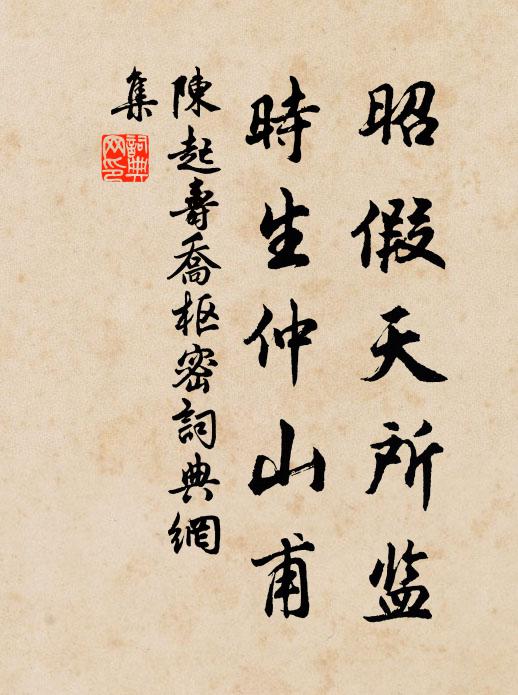 昭假天所监
時生仲山甫
陳起壽喬枢密詞典網
集
詞典
网印